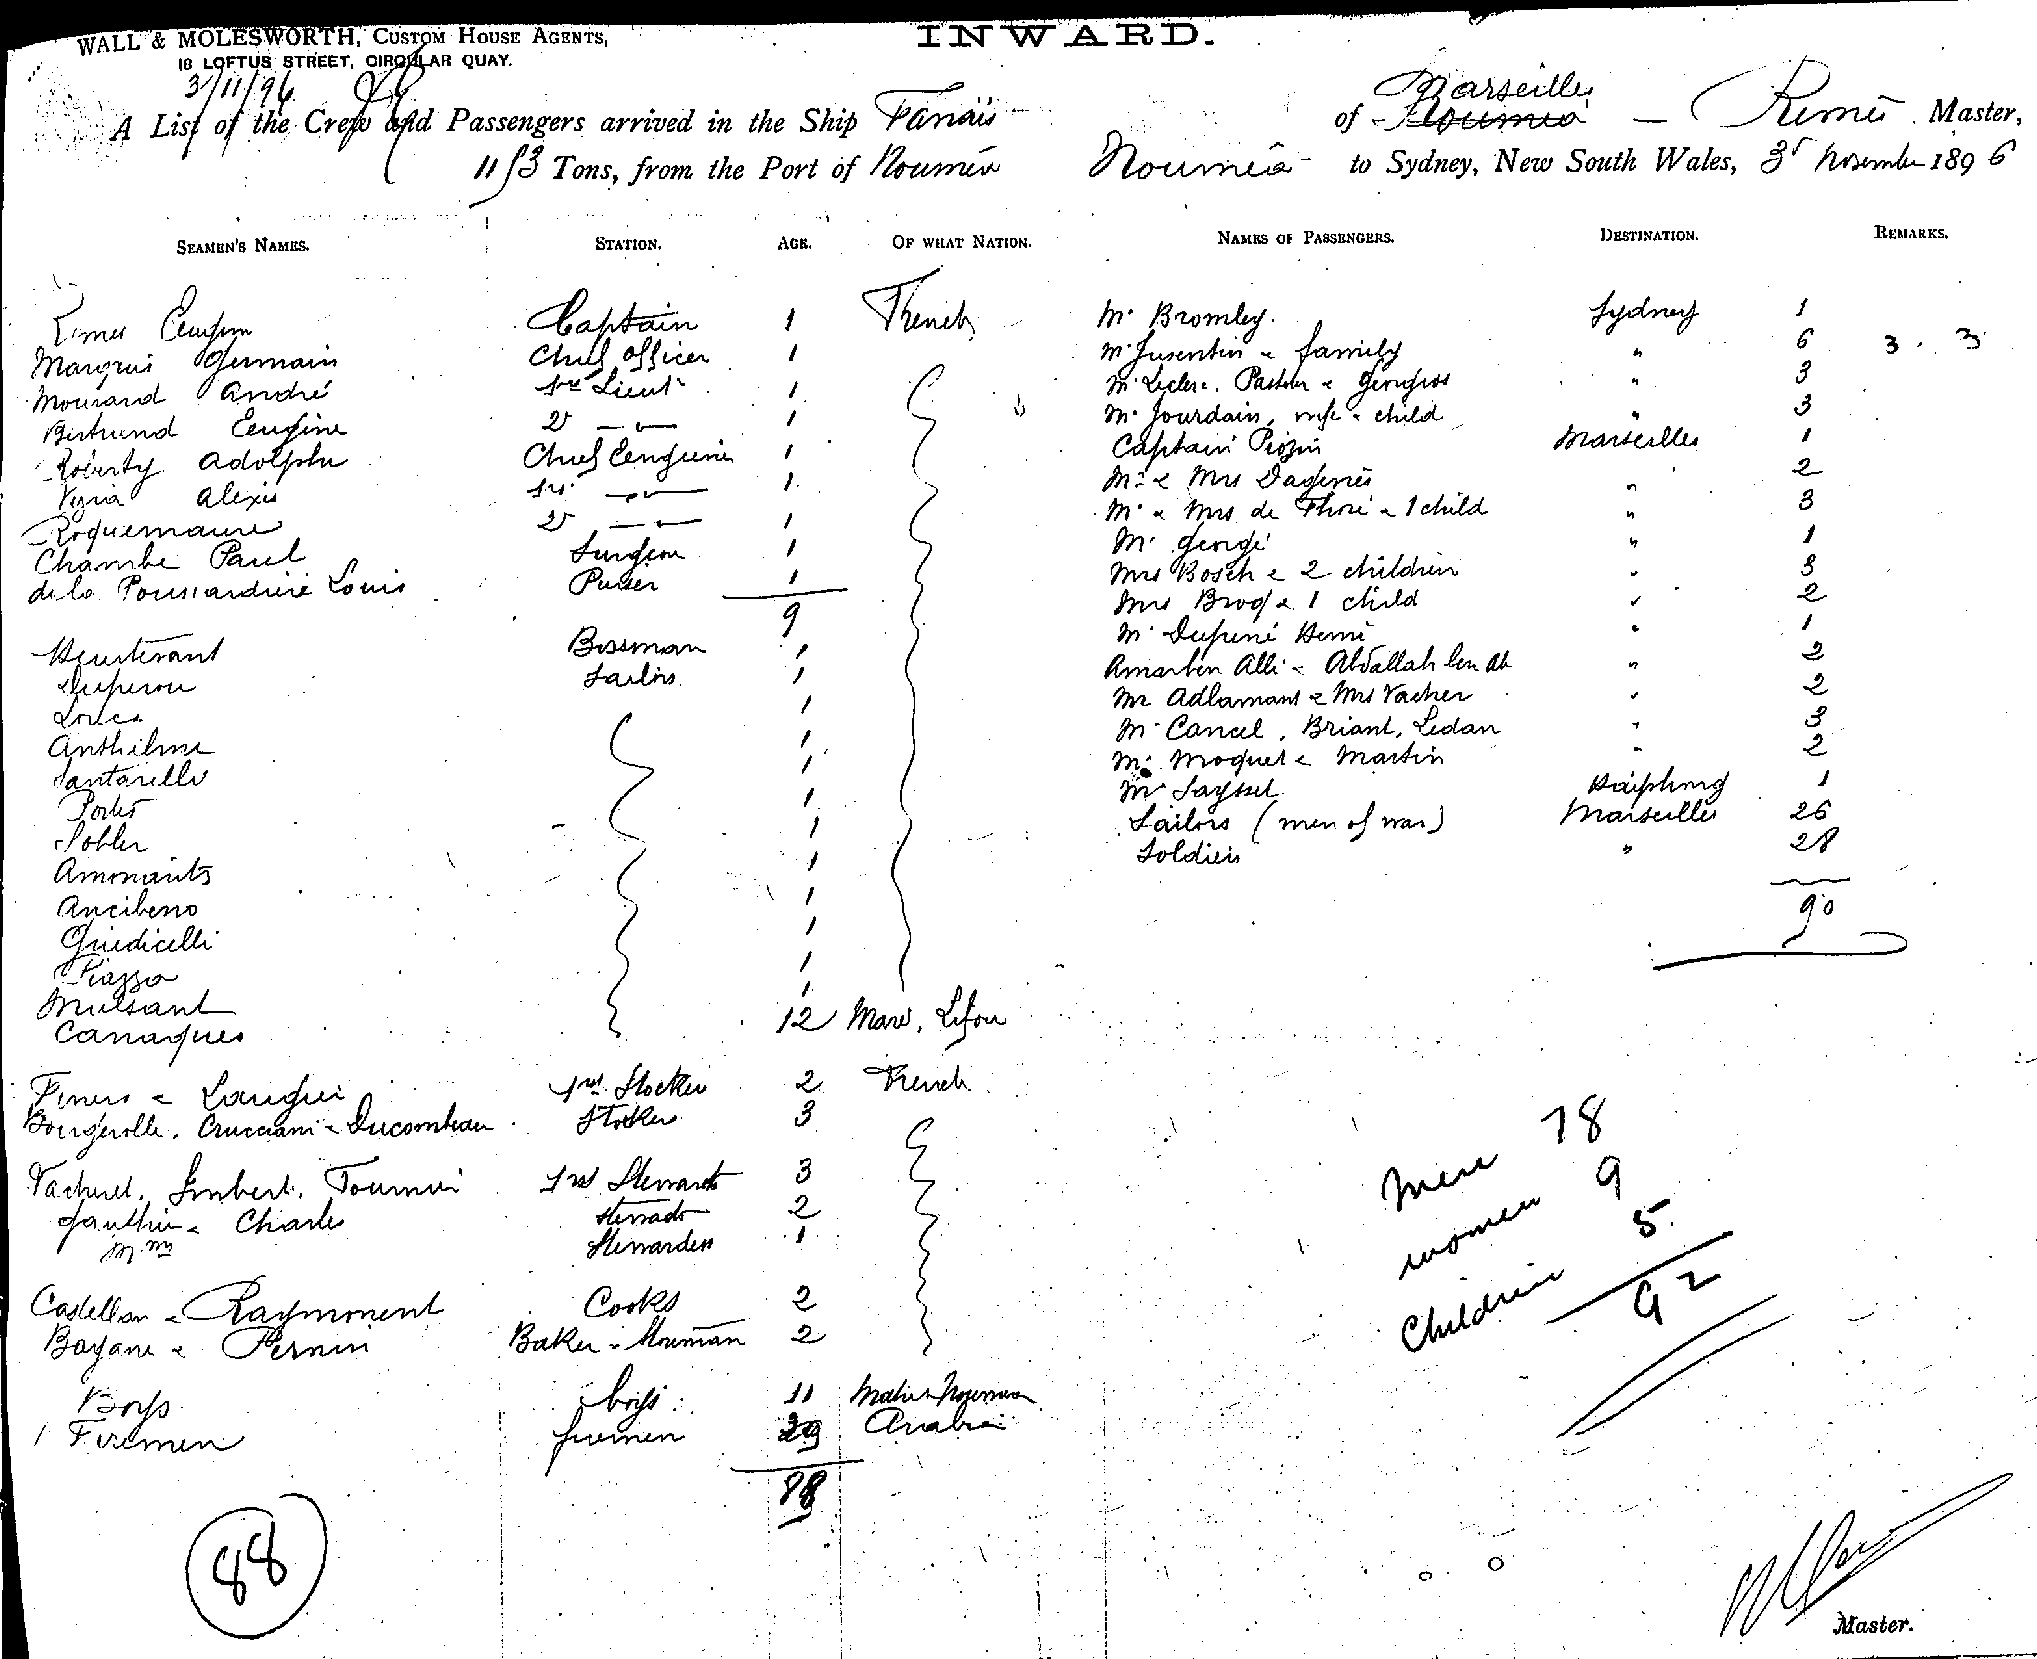 WALL & MOLESWORTH, CUSTOM HOUSE AGENTS,
18 LOFTUS STREET, CIRCULAR QUAY.
INWARD.
3/11/96
A List of the Crew and Passengers arrived in the Ship Tanaïs of Marseilles Noumea — Remès Master,
1153 Tons, from the Port of Nouméa Nouméa to Sydney, New South Wales, 3d November 1896
SEAMEN'S NAMES. STATION. AGE. OF WHAT NATION.
Captain 1 French
Marquis Germain Chief officer 1
Mourand André 1st Lieut 1
Bertrend Eeugène 2d — " — 1
Roberty Adolphe Chief Eengineer 1
Alexis 1st — " — 1
Roquemaure 2d — " — 1
Chambe Paul Surgeon 1
de la Poussardiere Louis Purser 1
9
Heurtevant Bossman 1
Duperou Sailors 1
Louca 1
Anthelme 1
Santarelli 1
Portes 1
Sohler 1
Amonaits 1
Ancibeno 1
Guidicelli 1
Piazza 1
Mulsant 1
Canaques 12 Maré, Lifou
& 1st Stocker 2 French
Bougerolle, Crucciani & Ducombeau Stoker 3
Vacheret, Imbert, Tournier 1st Stewards 3
Gauthier & Charles Stewards 2
Mme Stewardess 1
Castellan & Raymonent Cooks 2
Bayane & Pernin Baker & 2
Boys boys 11
1 Firemen firemen 29 Arabia
88
88
NAMES OF PASSENGERS. DESTINATION. REMARKS.
Mr Bromley. Sydney 1
Mr Jusentin & family " 6 3 . 3
Mr Leclerc, Pasteur & " 3
Mr Jourdain, wife & child " 3
Captain Marseilles 1
Mr & Mrs Dagenès " 2
Mr & Mrs de Thoré & 1 child " 3
Mr George " 1
Mrs Bosch & 2 children " 3
Mrs Broq & 1 child " 2
Mr Dupené Henri " 1
Amarben Alli & Abdallah ben Ali " 2
Mr Adlamant & Mrs Vacher " 2
Mr Cancel, Briant, Ledan " 3
Mr Moquet & Martin " 2
Mr Saysset Haïphong 1
Sailors (men of war) Marseilles 26
Soldiers " 28
90
Men 78
women 9
Children 5
92
Master.